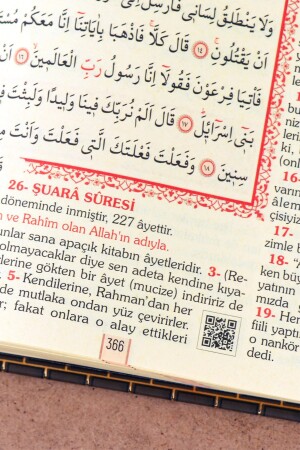 وَلَا يَنْطَلِقُ لِسَانٖي فَاَرْسِلْ
اَنْ يَقْتُلُونِ ١٤ قَالَ كَلَّا فَاذْهَبَا بِاٰيَاتِنَٓا اِنَّا مَعَكُمْ
فَاْتِيَا فِرْعَوْنَ فَقُولَٓا اِنَّا رَسُولُ رَبِّ الْعَالَمٖينَ ١٦ اَنْ
بَنٖٓي اِسْرَٓائٖلَ ١٧ قَالَ اَلَمْ نُرَبِّكَ فٖينَا وَلٖيدًا وَلَبِثْتَ
سِنٖينَ ١٨ وَفَعَلْتَ فَعْلَتَكَ الَّتٖي فَعَلْتَ وَاَنْتَ
26- ŞUARÂ SÛRESİ
döneminde inmiştir, 227 âyettir.
ve Rahîm olan Allah'ın adıyla.
unlar sana apaçık kitabın âyetleridir. 3- (Re-
olmayacaklar diye sen adeta kendine kıya-
erine gökten bir âyet (mucize) indiririz de
5- Kendilerine, Rahman'dan her
de mutlaka ondan yüz çevirirler.
r; fakat onlara o alay ettikleri
366
16-
âlem
17-
zimle
18- "A
ken
yatının
mızda
19- Her
fiili yaptı
o nankör
dedi.